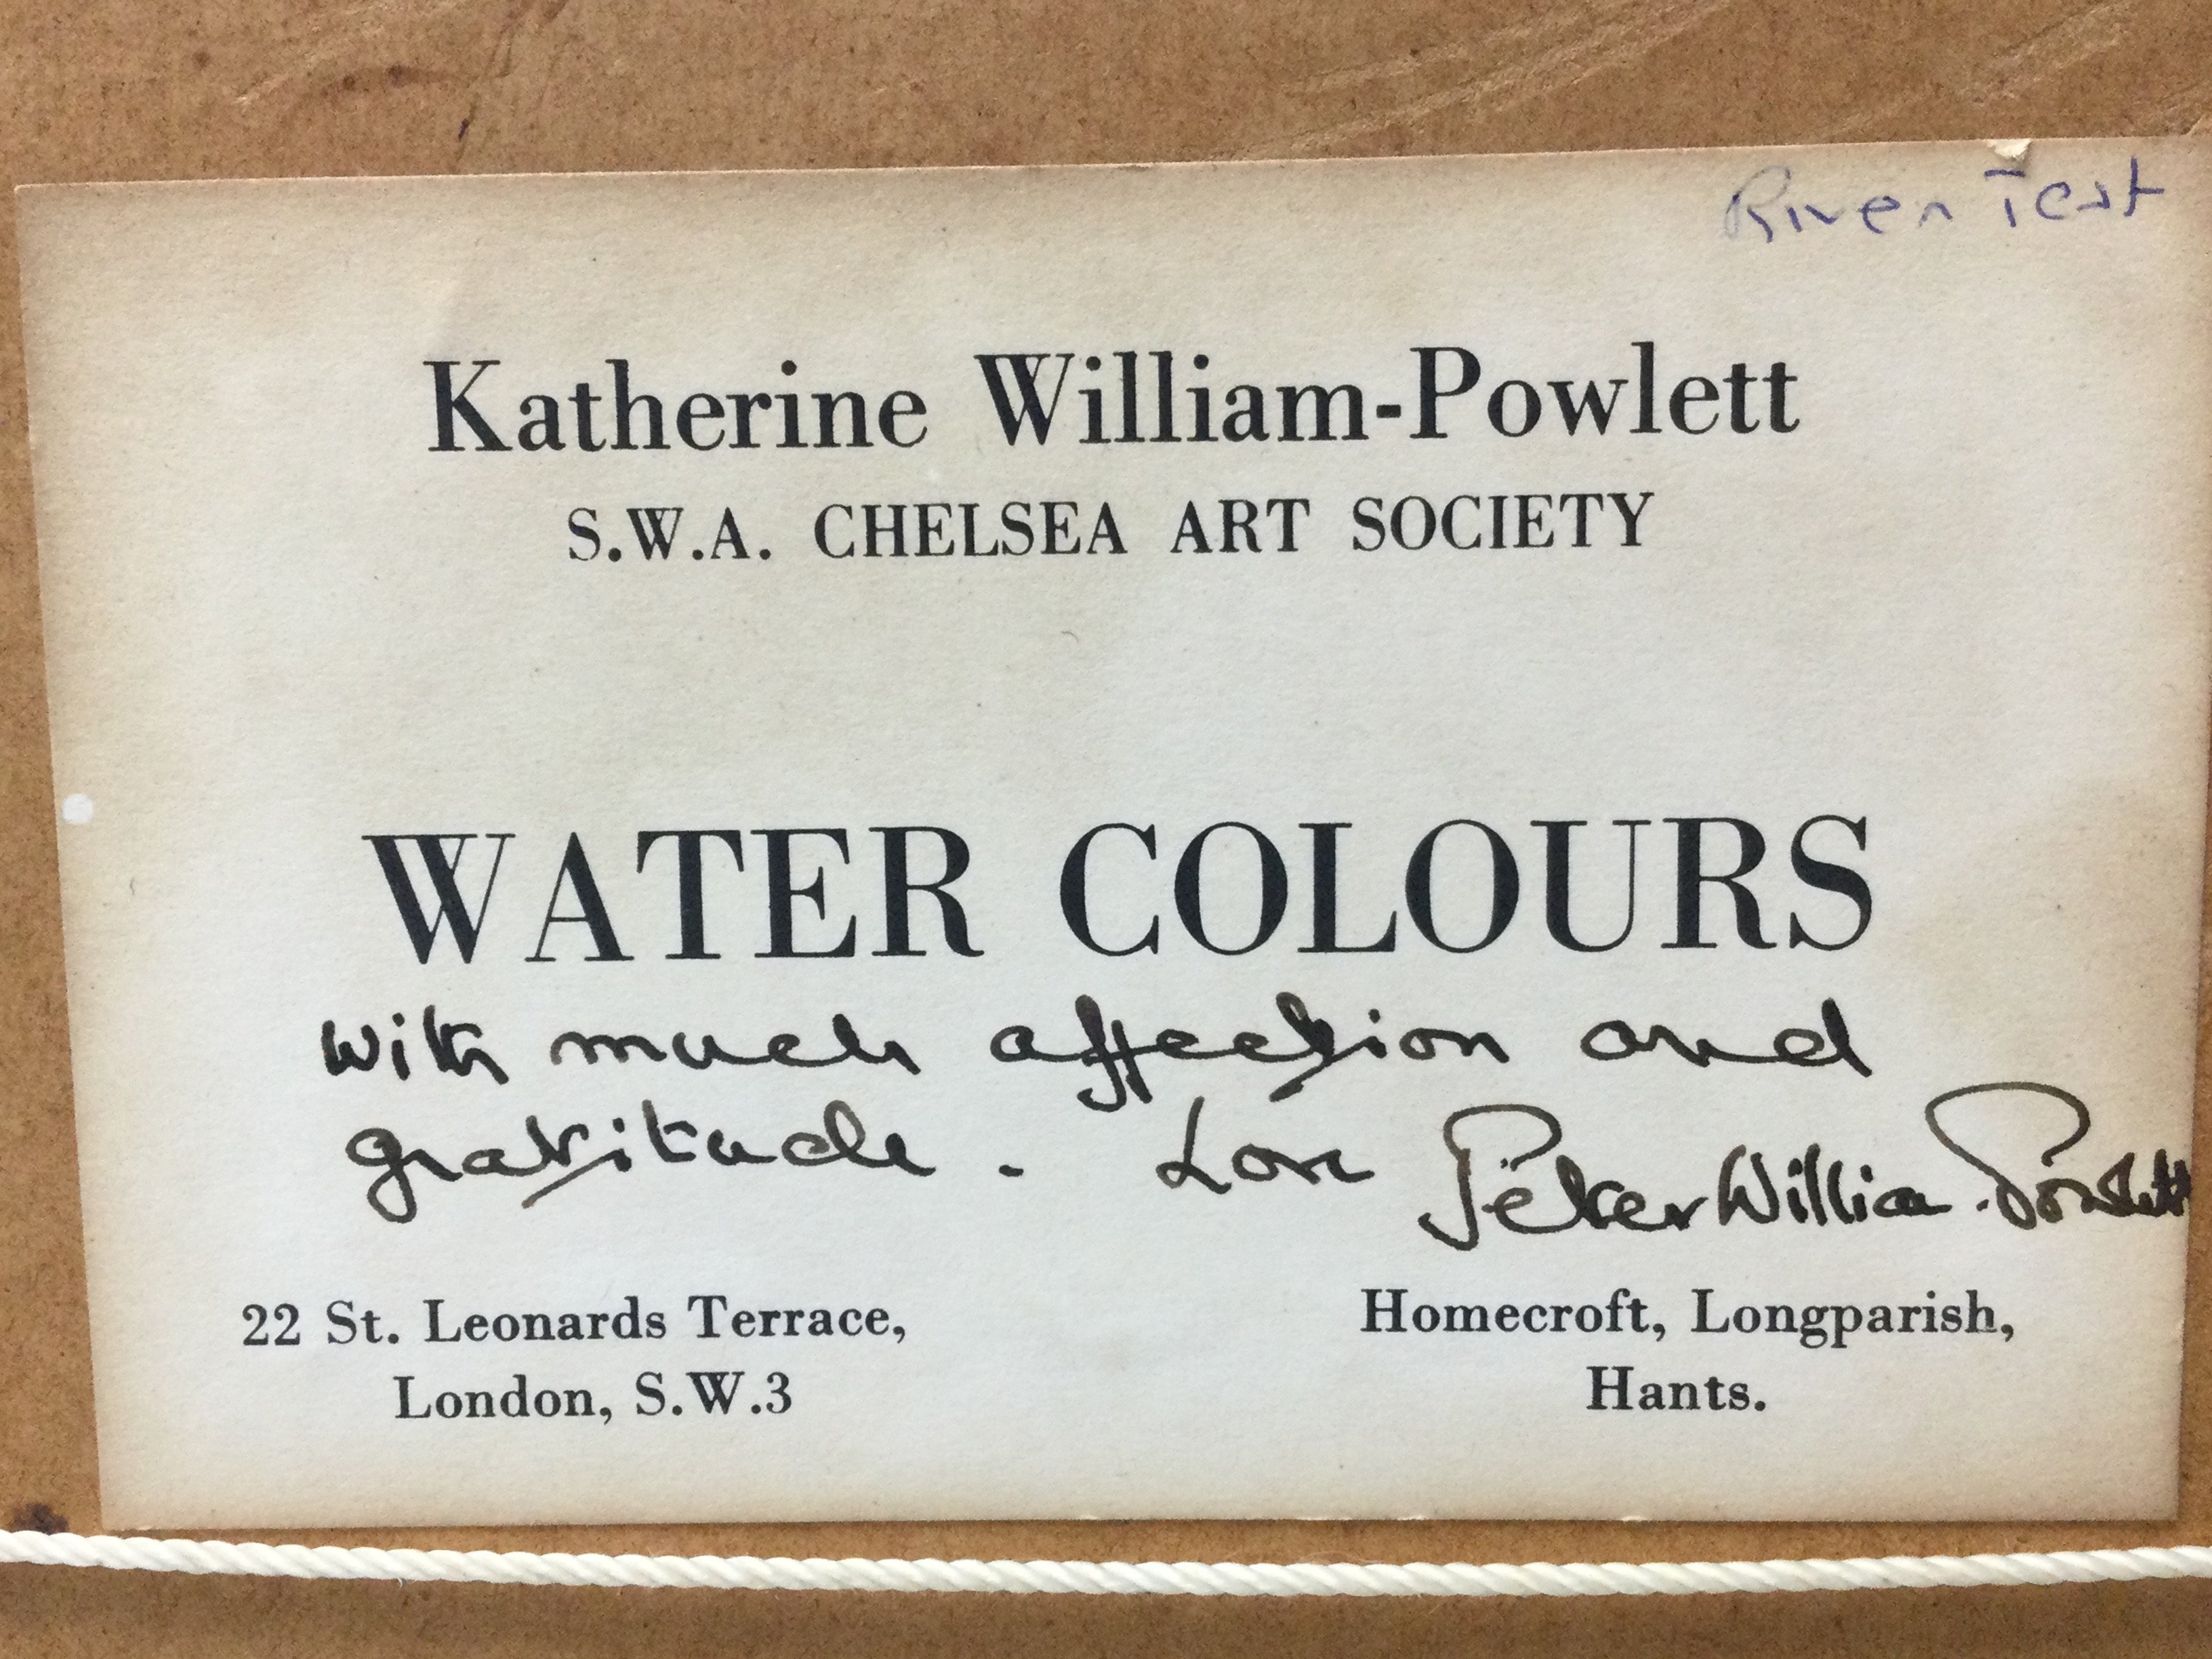 River Test
Katherine William-Powlett
S.W.A. CHELSEA ART SOCIETY
WATER COLOURS
With much affection and
gratitude. Love Peter William-Powlett
22 St. Leonards Terrace,
London, S.W.3
Homecroft, Longparish,
Hants.